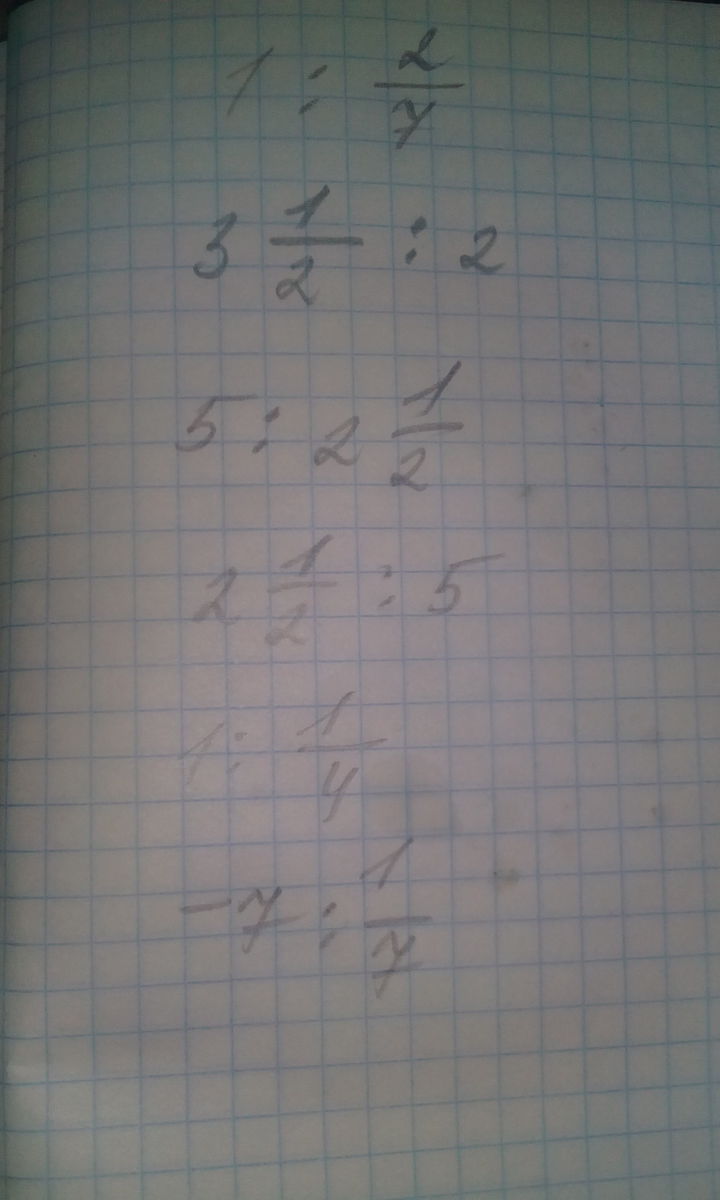 1 : 2/7
3 1/2 : 2
5 : 2 1/2
2 1/2 : 5
1 : 1/4
-7 : 1/7